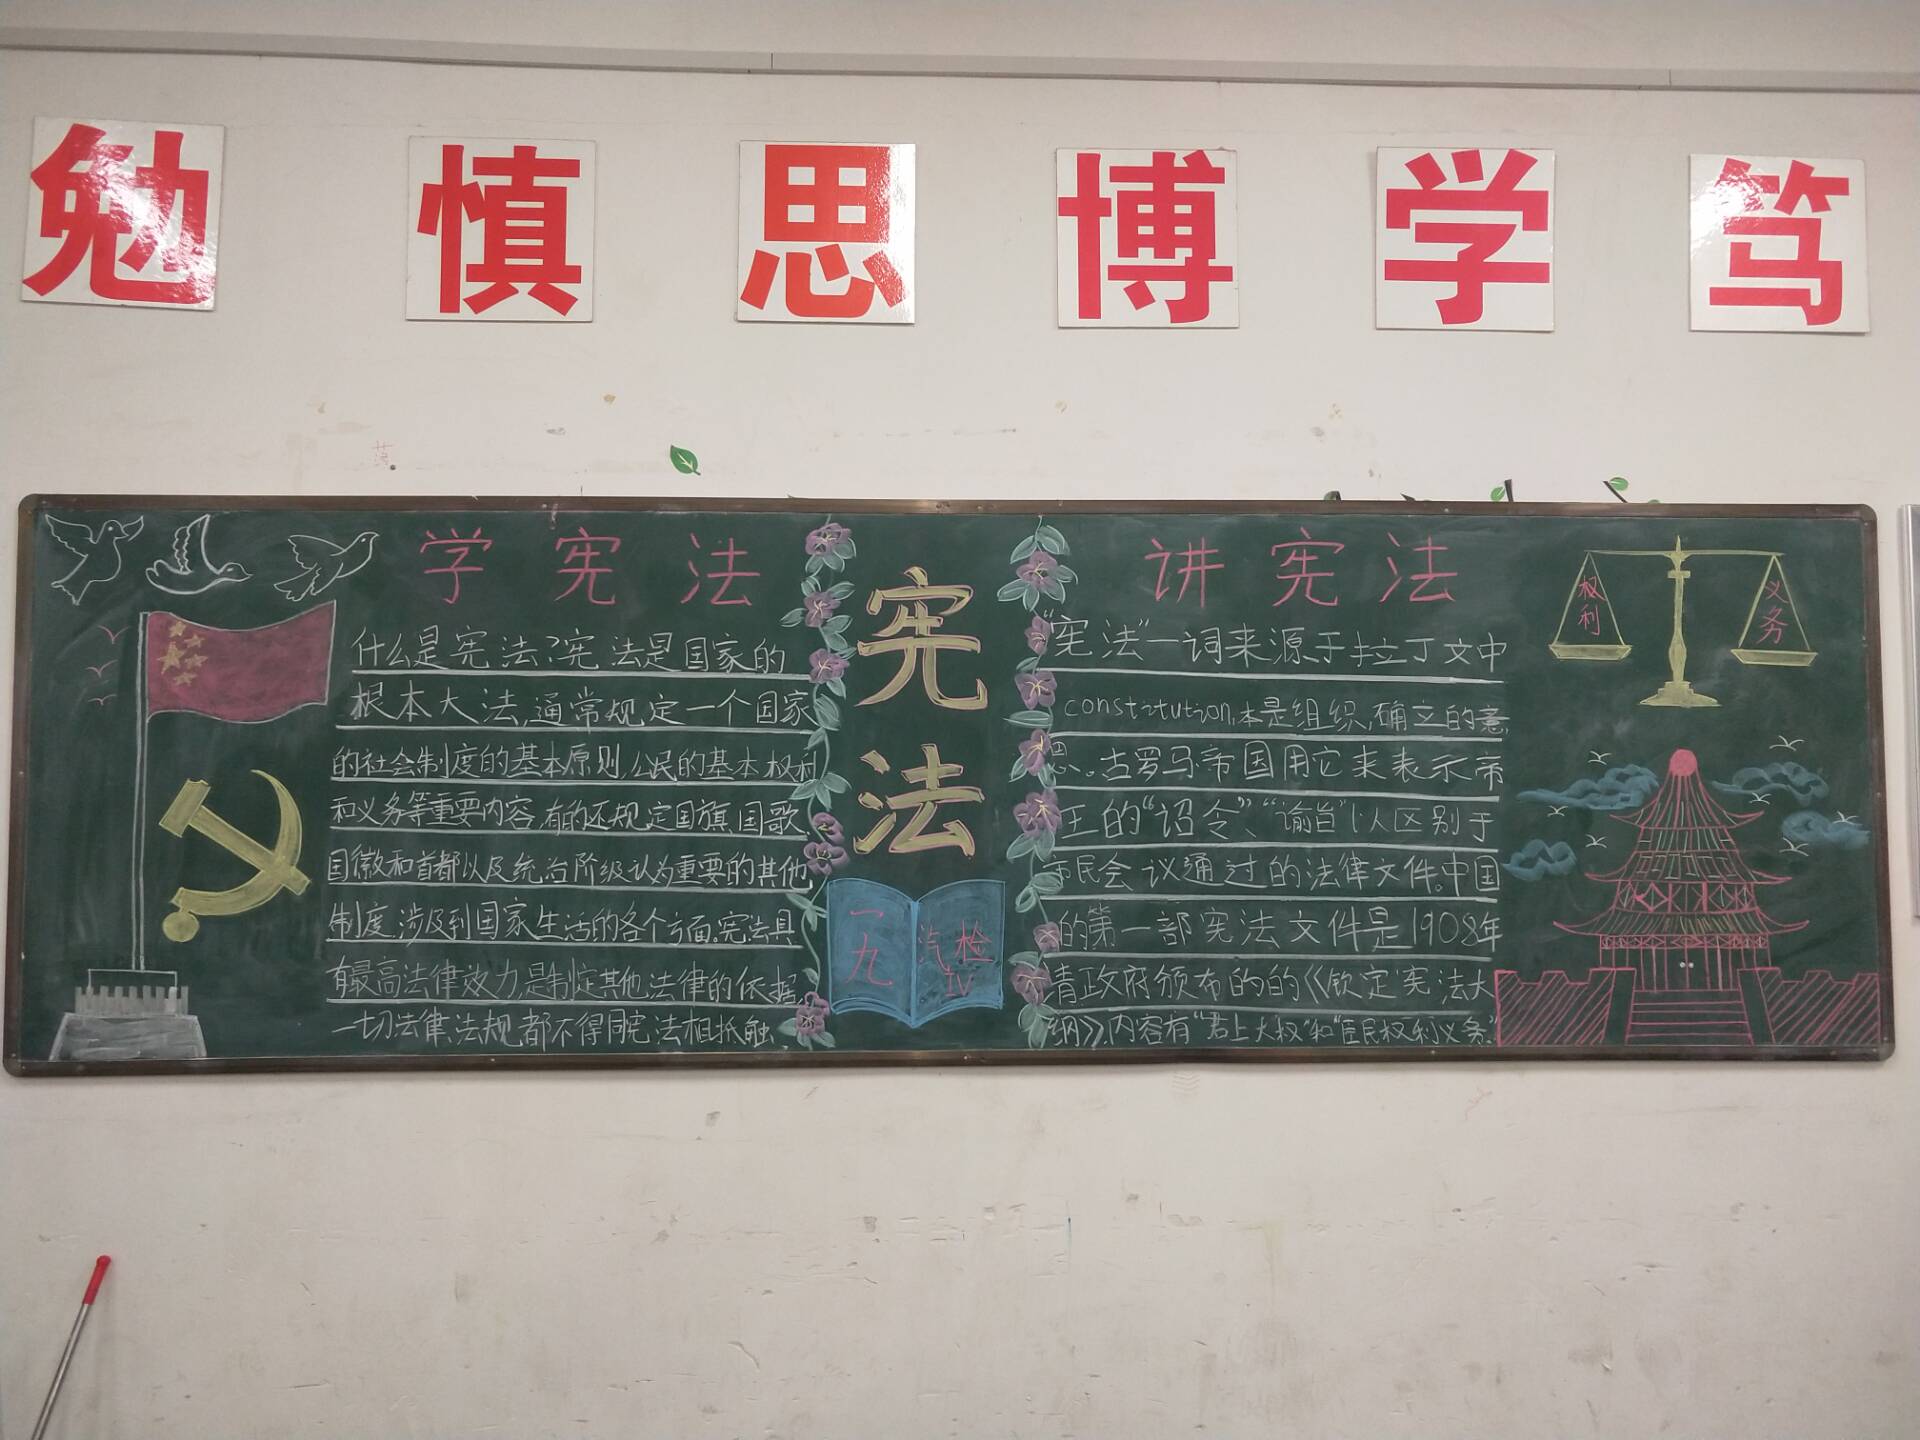 勉 慎 思 博 学 笃
学宪法
什么是宪法?宪法是国家的
根本大法,通常规定一个国家
的社会制度的基本原则,公民的基本权利
和义务等重要内容,有的还规定国旗、国歌、
国徽和首都以及统治阶级认为重要的其他
制度,涉及到国家生活的各个方面。宪法具
有最高法律效力,是制定其他法律的依据,
一切法律、法规都不得同宪法相抵触
宪法
一九
汽检
IV
讲宪法
“宪法”一词来源于拉丁文中
constitution,本是组织,确立的意
思。古罗马帝国用它来表示帝
王的“诏令”、“谕旨”以区别于
市民会议通过的法律文件。中国
的第一部宪法文件是1908年
清政府颁布的的《钦定宪法大
纲》,内容有“君上大权”和“臣民权利义务”
权利
义务